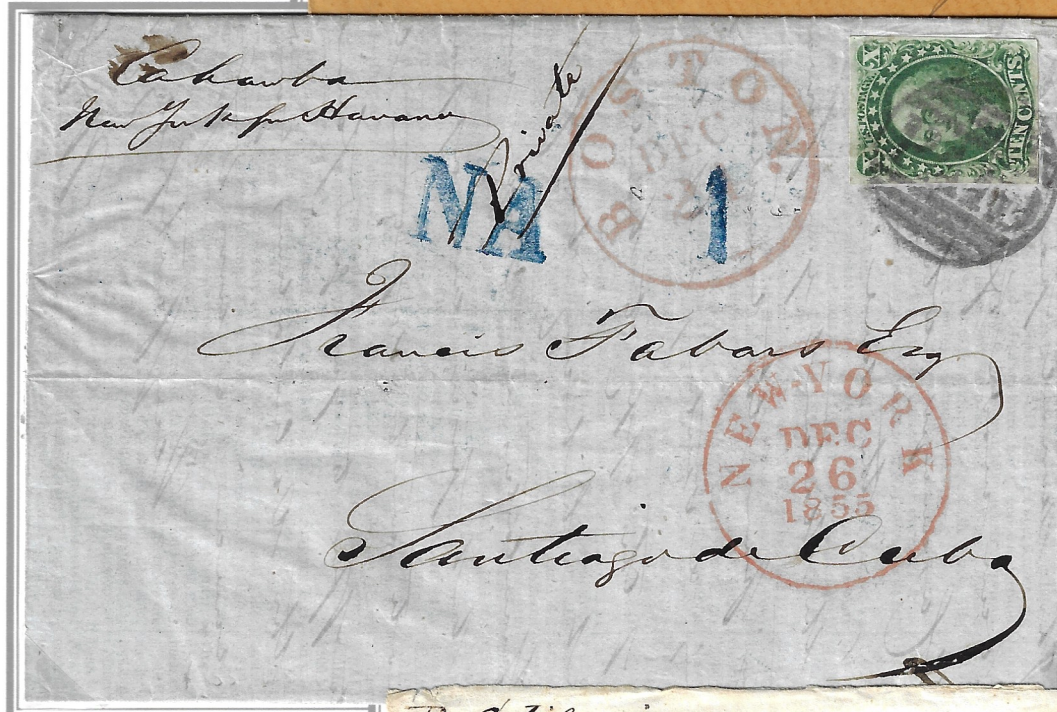 Cahawba
New York for Havana
Private
BOSTON
DEC
NA
1
U.S. POSTAGE
X X
TEN CENTS
Francis Fabars Esq
NEW-YORK
DEC
26
1855
Santiago de Cuba